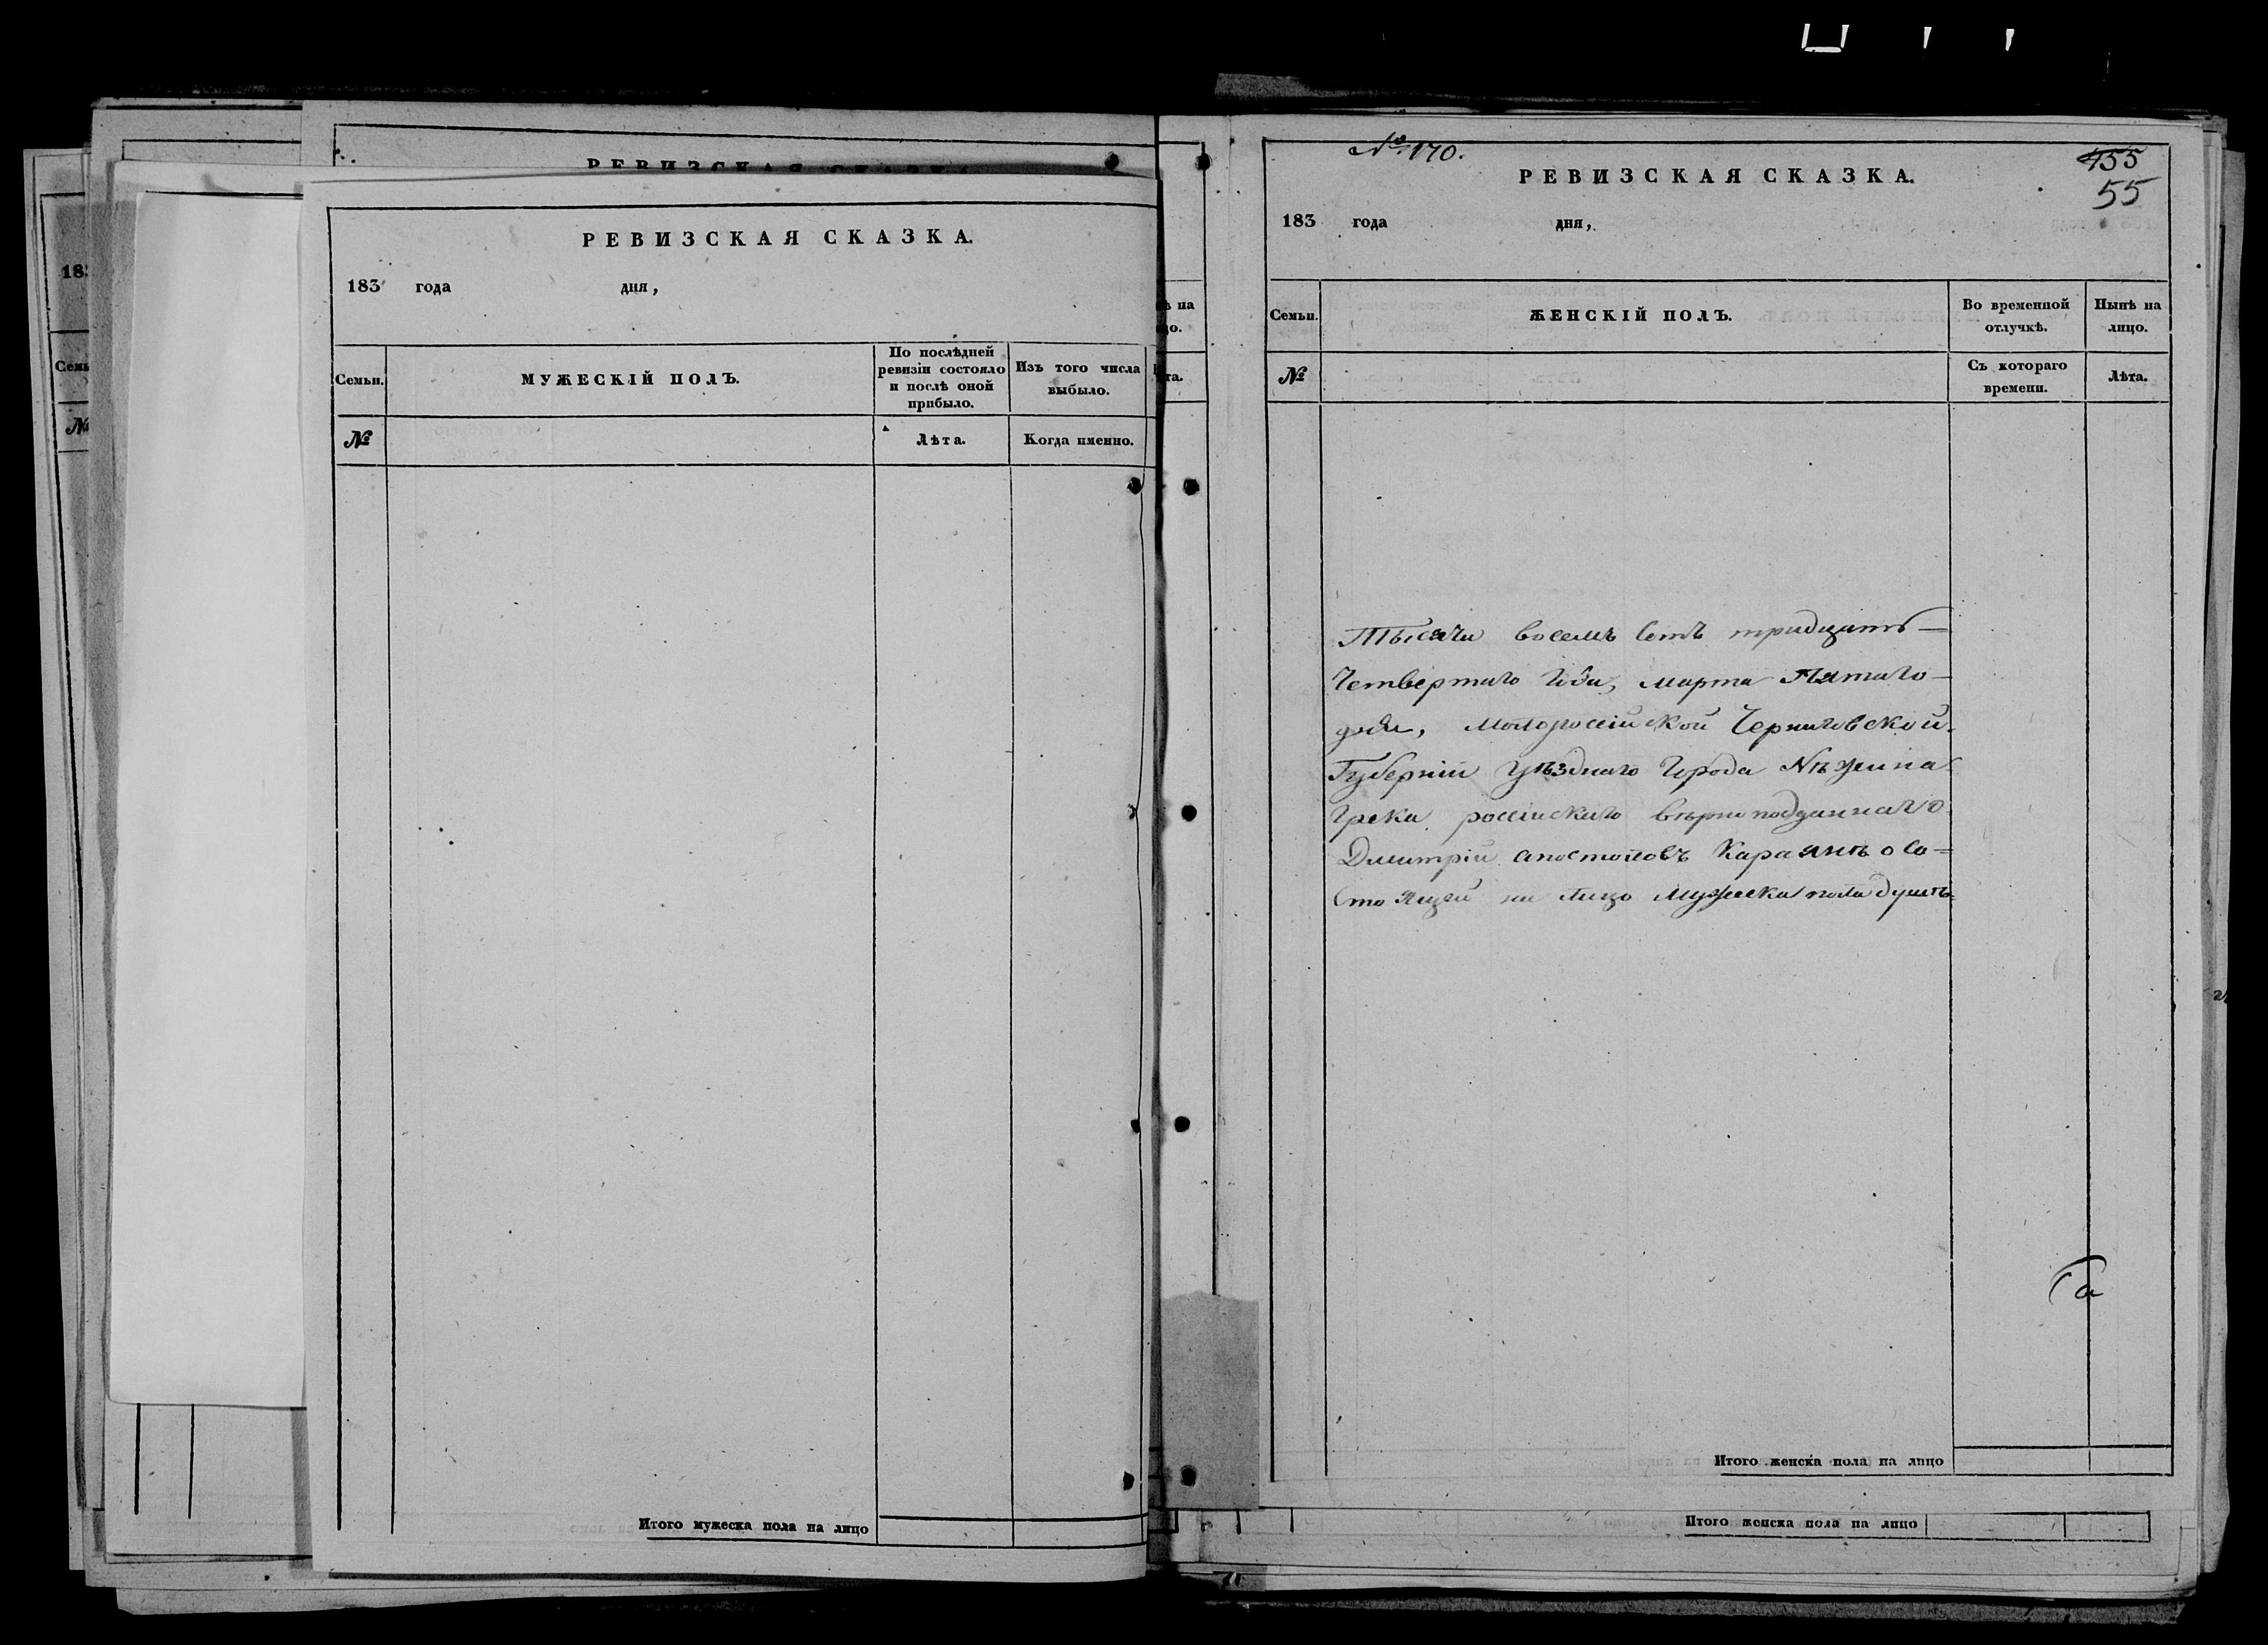 РЕВИЗСКАЯ СКАЗКА.
183 года дня,
Семьи.
МУЖЕСКІЙ ПОЛЪ.
По послѣдней ревизіи состояло и послѣ оной прибыло.
Изъ того числа выбыло.
№
Лѣта.
Когда именно.
Итого мужеска пола на лицо
№ 170.
455
55
РЕВИЗСКАЯ СКАЗКА.
183 года дня,
Семьи.
ЖЕНСКІЙ ПОЛЪ.
Во временной отлучкѣ.
Нынѣ на лицо.
№
Съ котораго времени.
Лѣта.
Тысячи восемъ сотъ тридцать
Четвертаго Года, марта Пятаго
дня, Малоросійской Черниговской
Губерніи уѣзднаго Города Нѣжина
Грека россійскаго вѣрноподданнаго
Дмитрій апостоловъ Бараянъ о Со=
Стоящей на лицо мужеска пола душѣ
Итого женска пола на лицо
Итого женска пола на лицо